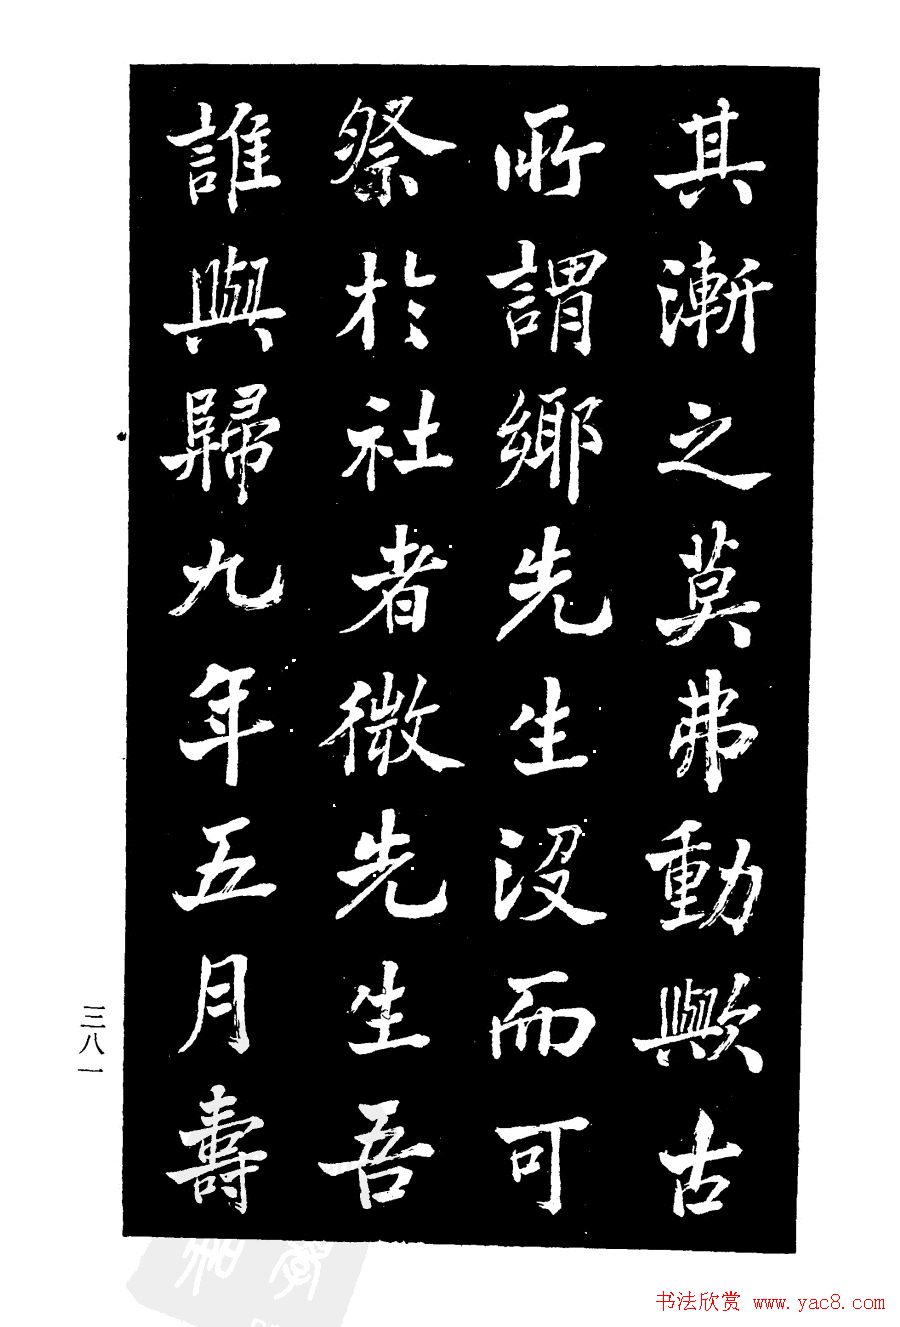 其漸之莫弗動歟古
所謂鄉先生没而可
祭於社者微先生吾
誰與歸九年五月壽
三八一
书法欣赏 www.yac8.com